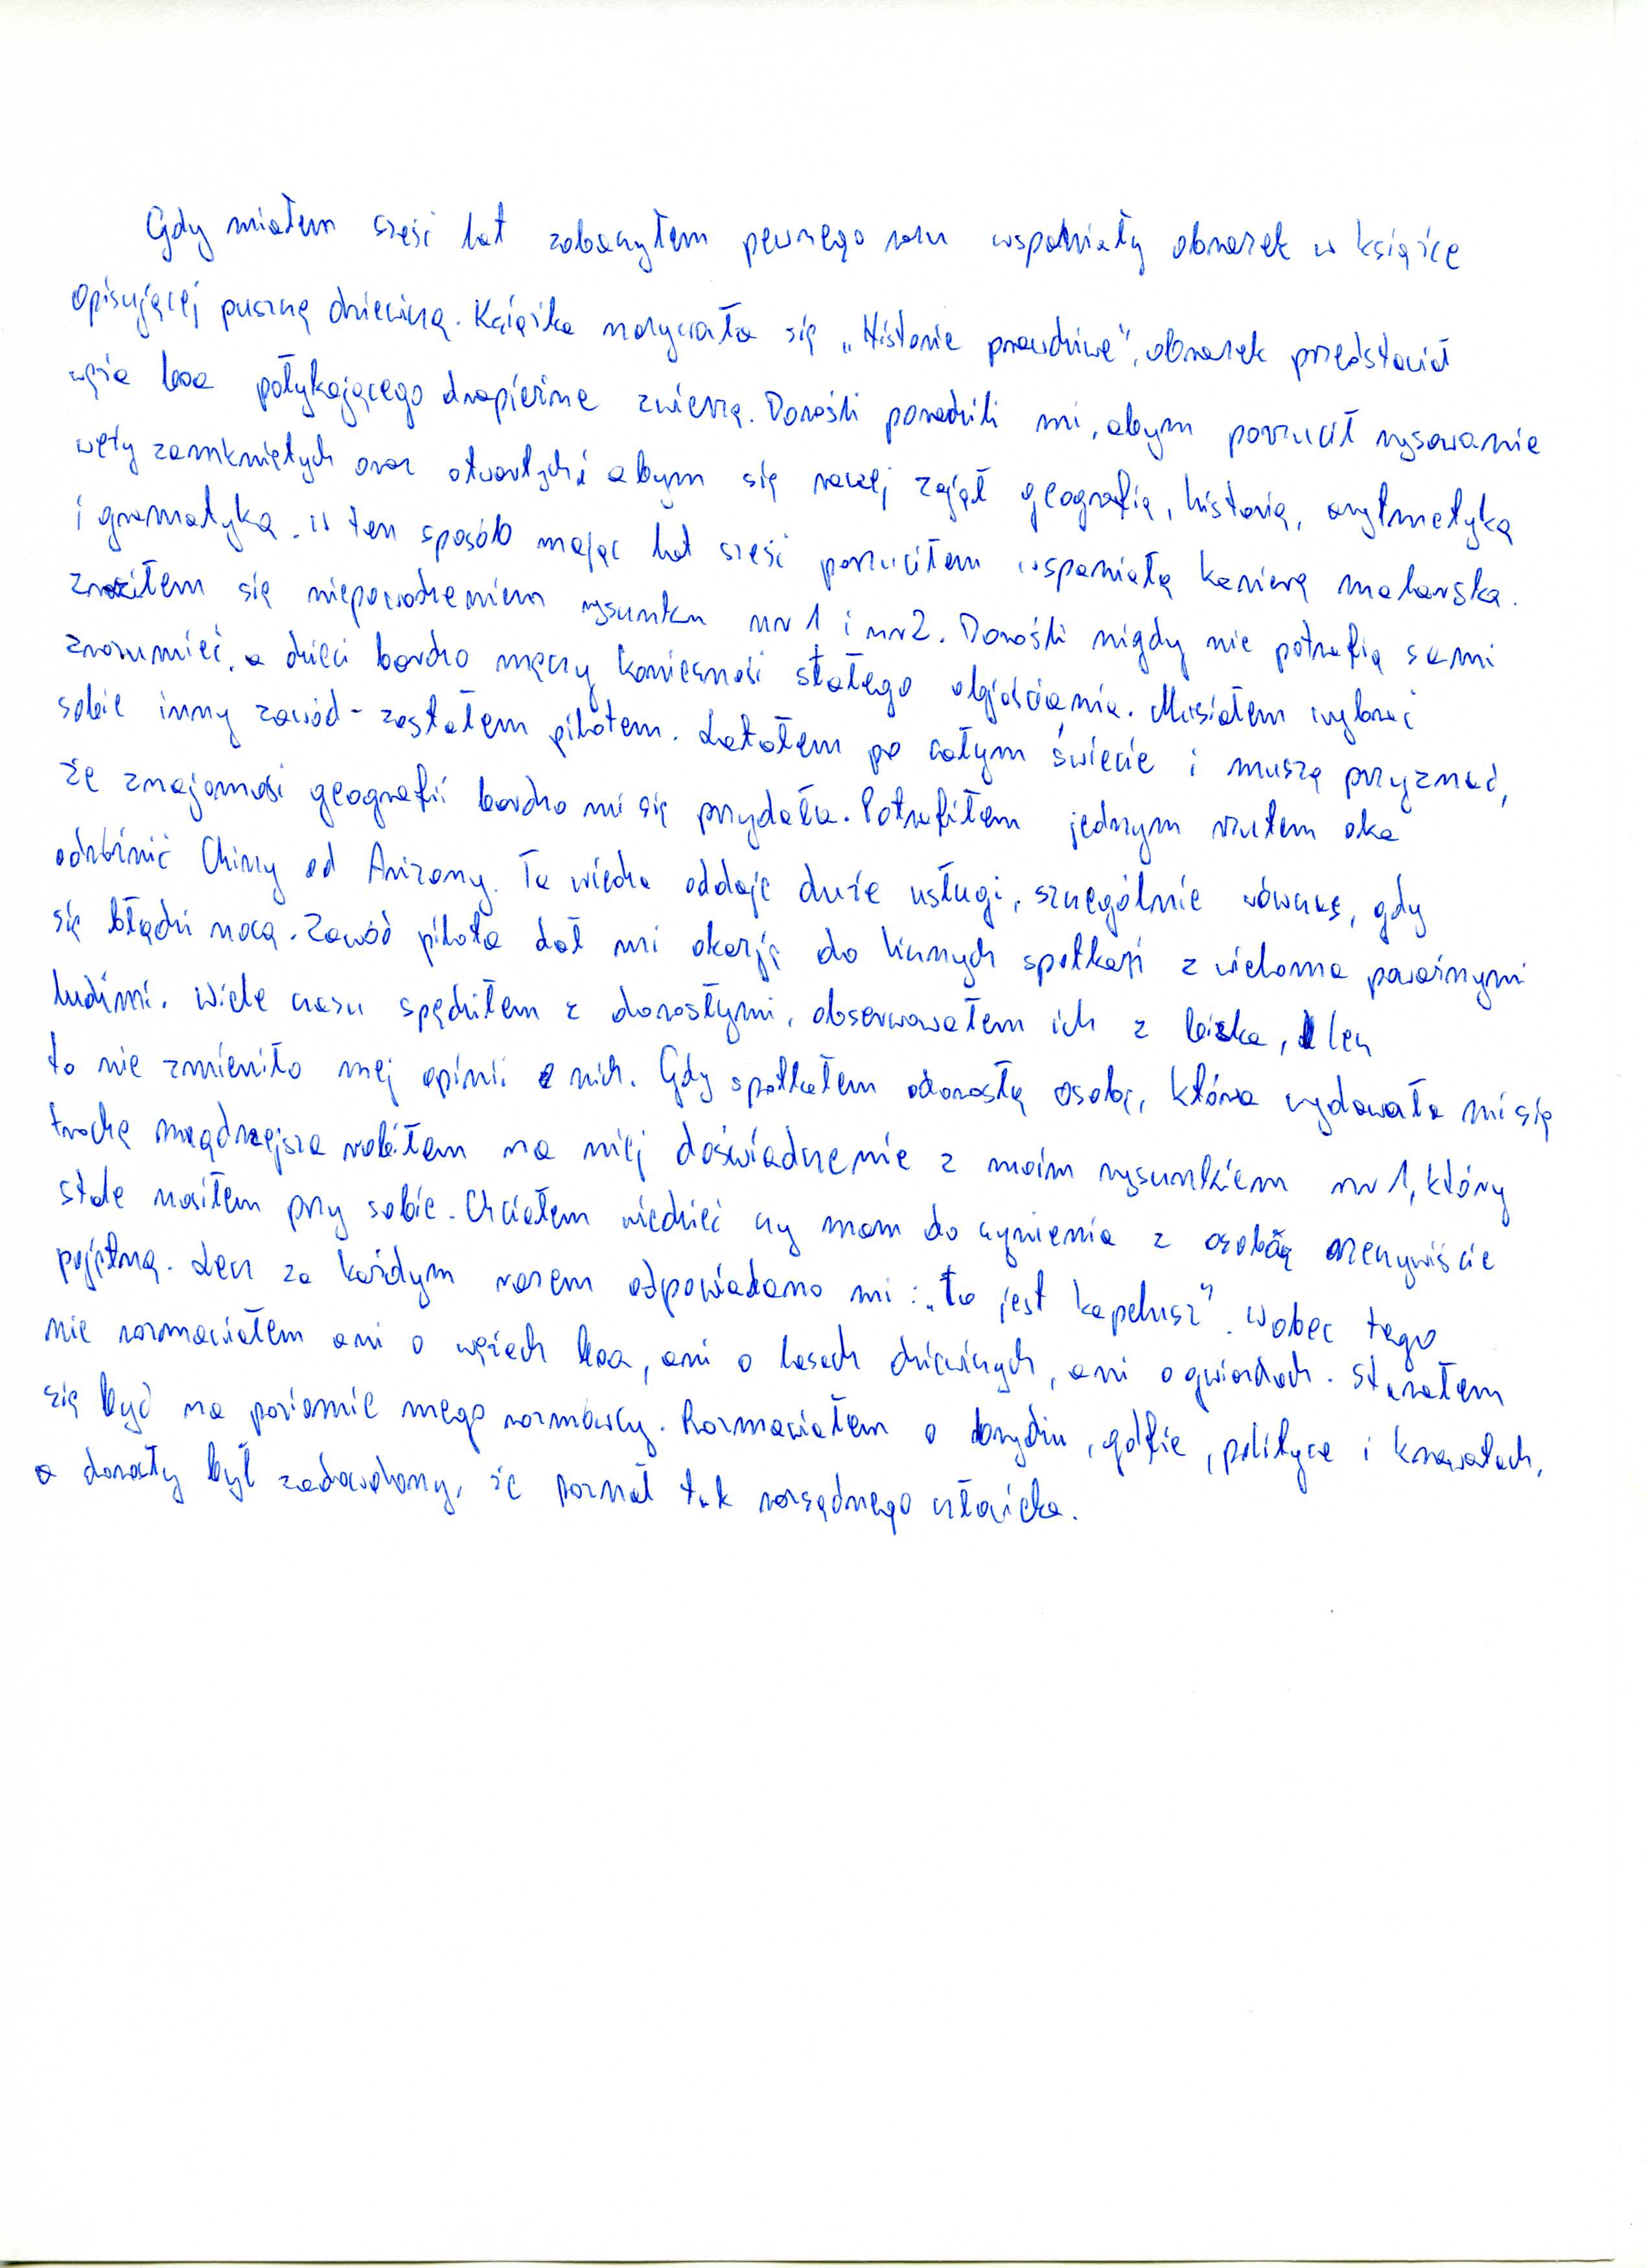 Gdy miałem sześć lat zobaczyłem pewnego razu wspaniały obrazek w książce
opisującej puszczę dziewiczą. Książka nazywała się „Historie prawdziwe", obrazek przedstawiał
węża boa połykającego drapieżne zwierzę. Dorośli poradzili mi, abym porzucił rysowanie
węży zamkniętych oraz otwartych i abym się raczej zajął geografią, historią, arytmetyką
i gramatyką. W ten sposób mając lat sześć porzuciłem wspaniałą karierę malarska.
Zraziłem się niepowodzeniem rysunku nr 1 i nr 2. Dorośli nigdy nie potrafią sami
zrozumieć, a dzieci bardzo męczy konieczność stałego objaśniania. Musiałem wybrać
sobie inny zawód - zostałem pilotem. Latałem po całym świecie i muszę przyznać,
że znajomość geografii bardzo mi się przydała. Potrafiłem jednym rzutem oka
odróżnić Chiny od Arizony. Ta wiedza oddaje duże usługi, szczególnie wówczas, gdy
się błądzi nocą. Zawód pilota dał mi okazję do licznych spotkań z wieloma poważnymi
ludźmi. Wiele czasu spędziłem z dorosłymi, obserwowałem ich z bliska, lecz
to nie zmieniło mej opinii o nich. Gdy spotkałem dorosłą osobę, która wydawała mi się
trochę mądrzejsza robiłem na niej doświadczenie z moim rysunkiem nr 1, który
stale nosiłem przy sobie. Chciałem wiedzieć czy mam do czynienia z osobą rzeczywiście
pojętną. Lecz za każdym razem odpowiadano mi: „To jest kapelusz". Wobec tego
nie rozmawiałem ani o wężach boa, ani o lasach dziewiczych, ani o gwiazdach. Starałem
się być na poziomie mego rozmówcy. Rozmawiałem o brydżu, golfie, polityce i krawatach,
a dorosły był zadowolony, że poznał tak rozsądnego człowieka.